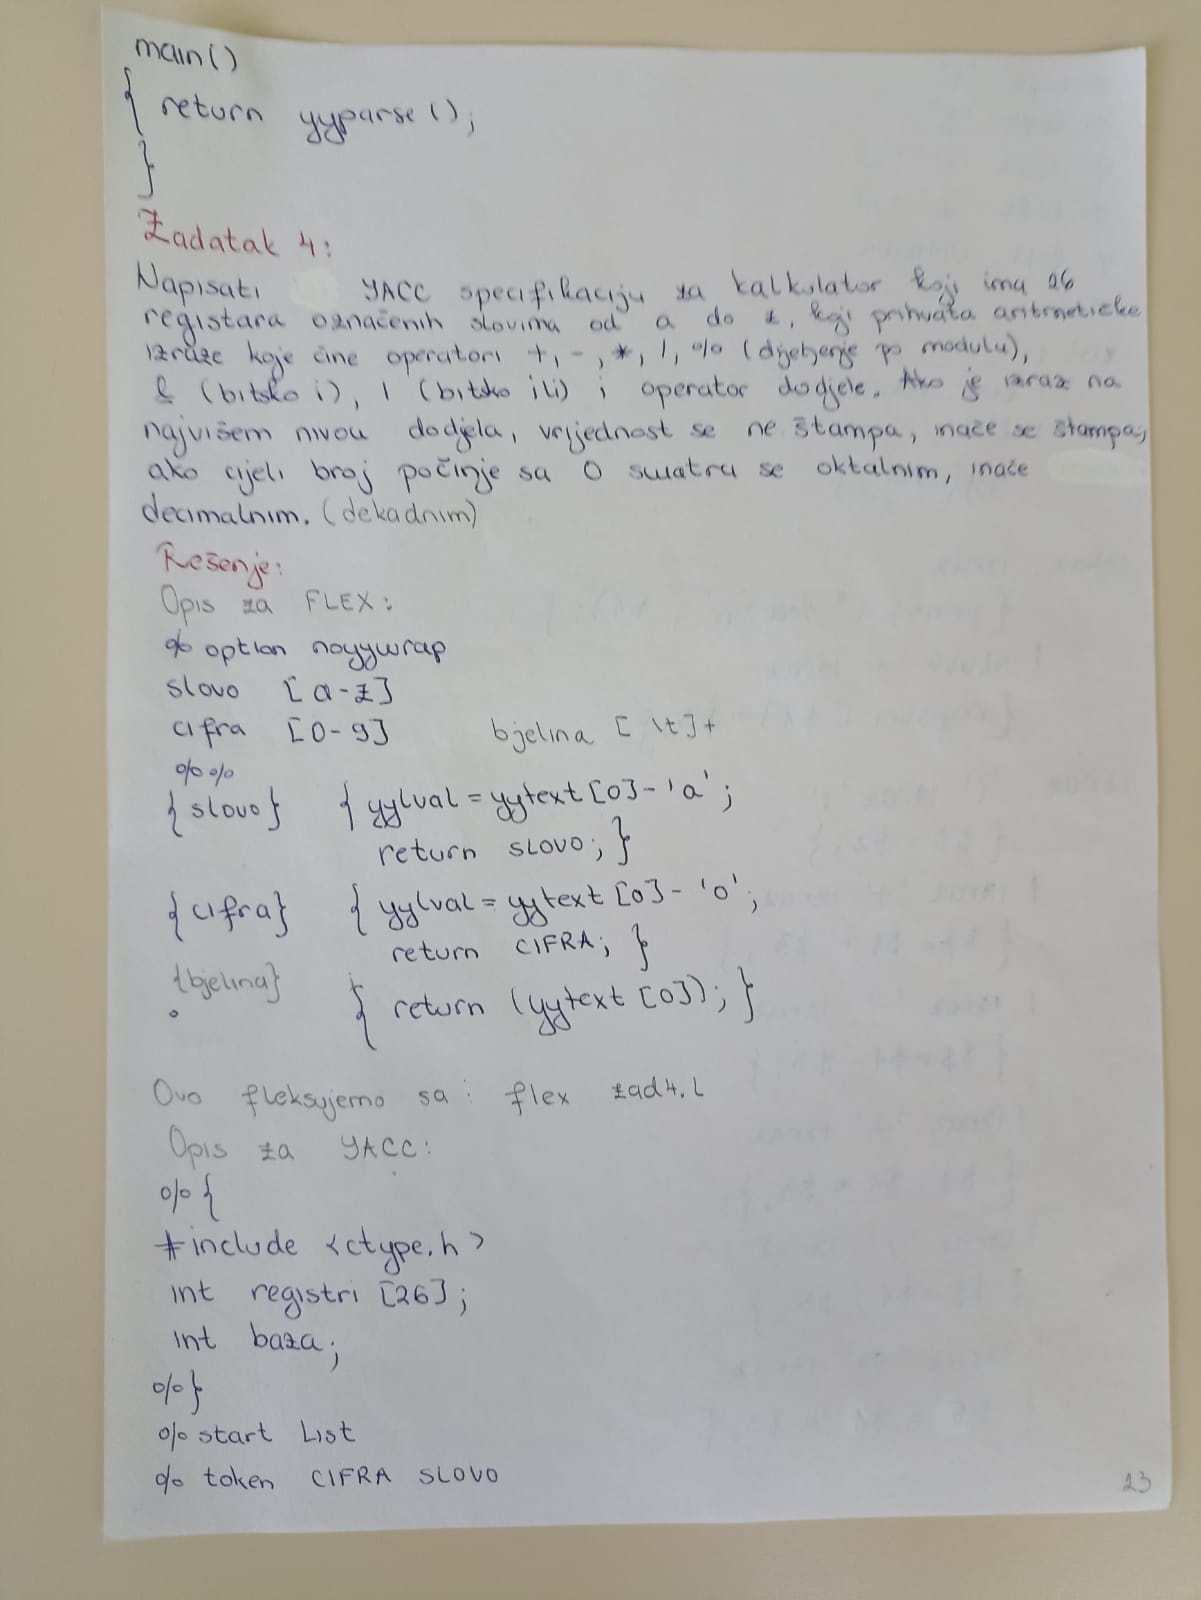 main()
{ return yyparse();
}
Zadatak 4:
Napisati YACC specifikaciju za kalkulator koji ima 26
registara označenih slovima od a do z, koji prihvata aritmetičke
izraze koje čine operatori +, -, *, /, % (dijeljenje po modulu),
& (bitsko i), | (bitsko ili) i operator dodjele. Ako je izraz na
najvišem nivou dodjela, vrijednost se ne štampa, inače se štampa;
ako cijeli broj počinje sa 0 smatra se oktalnim, inače
decimalnim. (dekadnim)
Rešenje:
Opis za FLEX:
% option noyywrap
slovo [a-z]
cifra [0-9] bjelina [ \t]+
%%
{slovo} { yylval = yytext[0]-'a';
return SLOVO; }
{cifra} { yylval = yytext[0]-'0';
return CIFRA; }
{bjelina}
. { return (yytext[0]); }
Ovo fleksujemo sa: flex zad4.l
Opis za YACC:
%{
#include <ctype.h>
int registri [26];
int baza;
%}
% start List
% token CIFRA SLOVO
23